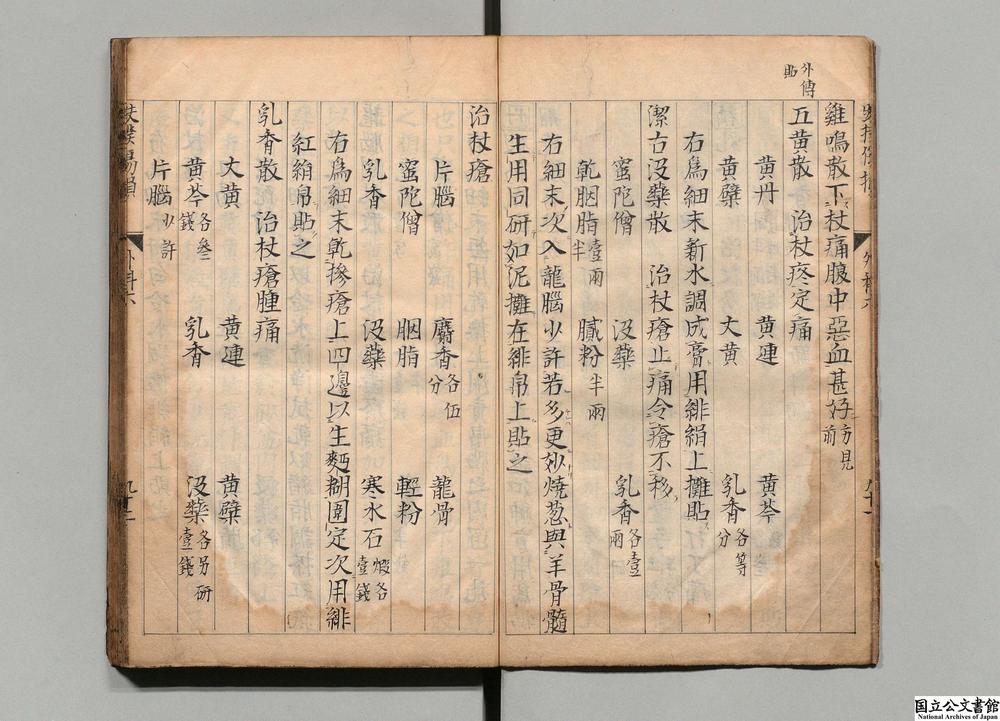 外傳
貼
雞鳴散下杖痛腹中惡血甚好方見前
五黃散　治杖疼定痛
黃丹　黃連　黃芩
黃檗　大黃　乳香各等分
右爲細末新水調成膏用緋絹上攤貼
潔古沒藥散　治杖瘡止痛令瘡不移
蜜陀僧　沒藥　乳香各壹兩
乾胭脂壹兩半　膩粉半兩
右細末次入龍腦少許若多更妙燒葱與羊骨髓
生用同研如泥攤在緋帛上貼之
治杖瘡
片腦　麝香各伍分　龍骨
蜜陀僧　胭脂　輕粉
乳香　沒藥　寒水石煅各壹錢
右爲細末乾摻瘡上四邊以生麪糊圍定次用緋
紅絹帛貼之
乳香散　治杖瘡腫痛
大黃　黃連　黃檗
黃芩各叄錢　乳香　沒藥各另研壹錢
片腦少許
外科六
九十二
国立公文書館
National Archives of Japan